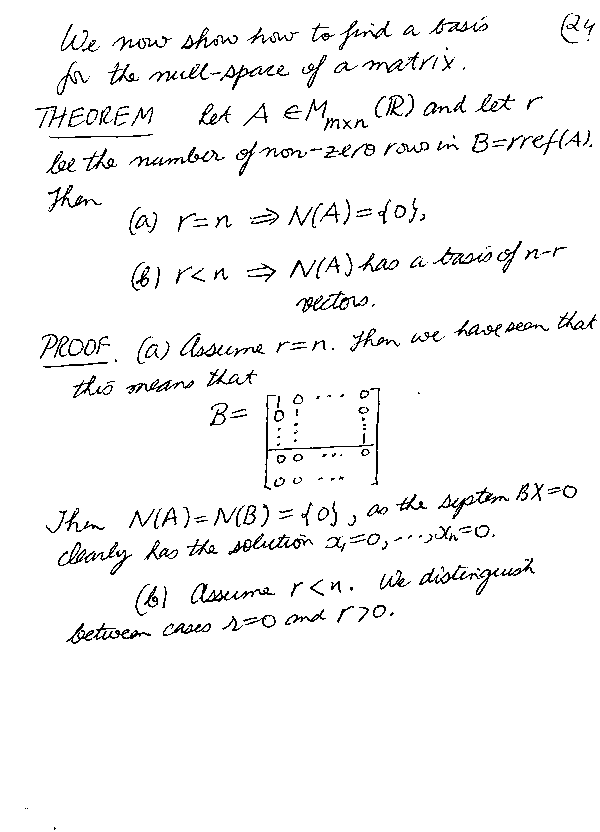 We now show how to find a basis (24
for the null-space of a matrix.
THEOREM Let A ∈ M_{m×n}(R) and let r
be the number of non-zero rows in B=rref(A).
Then
(a) r=n ⇒ N(A)={0},
(b) r<n ⇒ N(A) has a basis of n-r
vectors.
PROOF. (a) Assume r=n. Then we have seen that
this means that
B= [ 1 0 ... 0
0 1 0
⋮ ⋮ ⋮ 1
0 0 ... 0
0 0 ... ]
Then N(A)=N(B)={0}, as the system BX=0
clearly has the solution x₁=0,...,xₙ=0.
(b) Assume r<n. We distinguish
between cases r=0 and r>0.